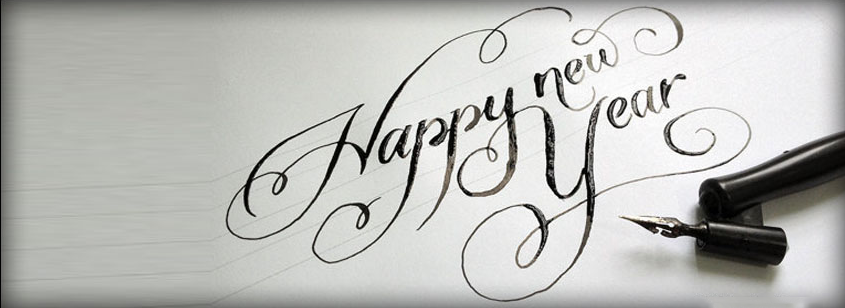 Happy new
Year